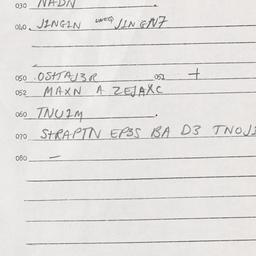 030 NADN
040 J1NG1N J1NGN7
050 OSHTAJ3R 051 +
052 MAXN A ZEJAXC
060 TNU1M
070 STRAPTN EP3S BA D3 TNOJ
080 —